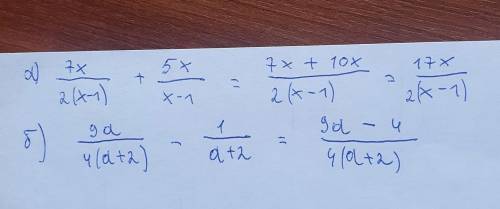 а) 7x/2(x-1) + 5x/x-1 = 7x + 10x/2(x-1) = 17x/2(x-1)
б) 9a/4(a+2) - 1/a+2 = 9a - 4/4(a+2)